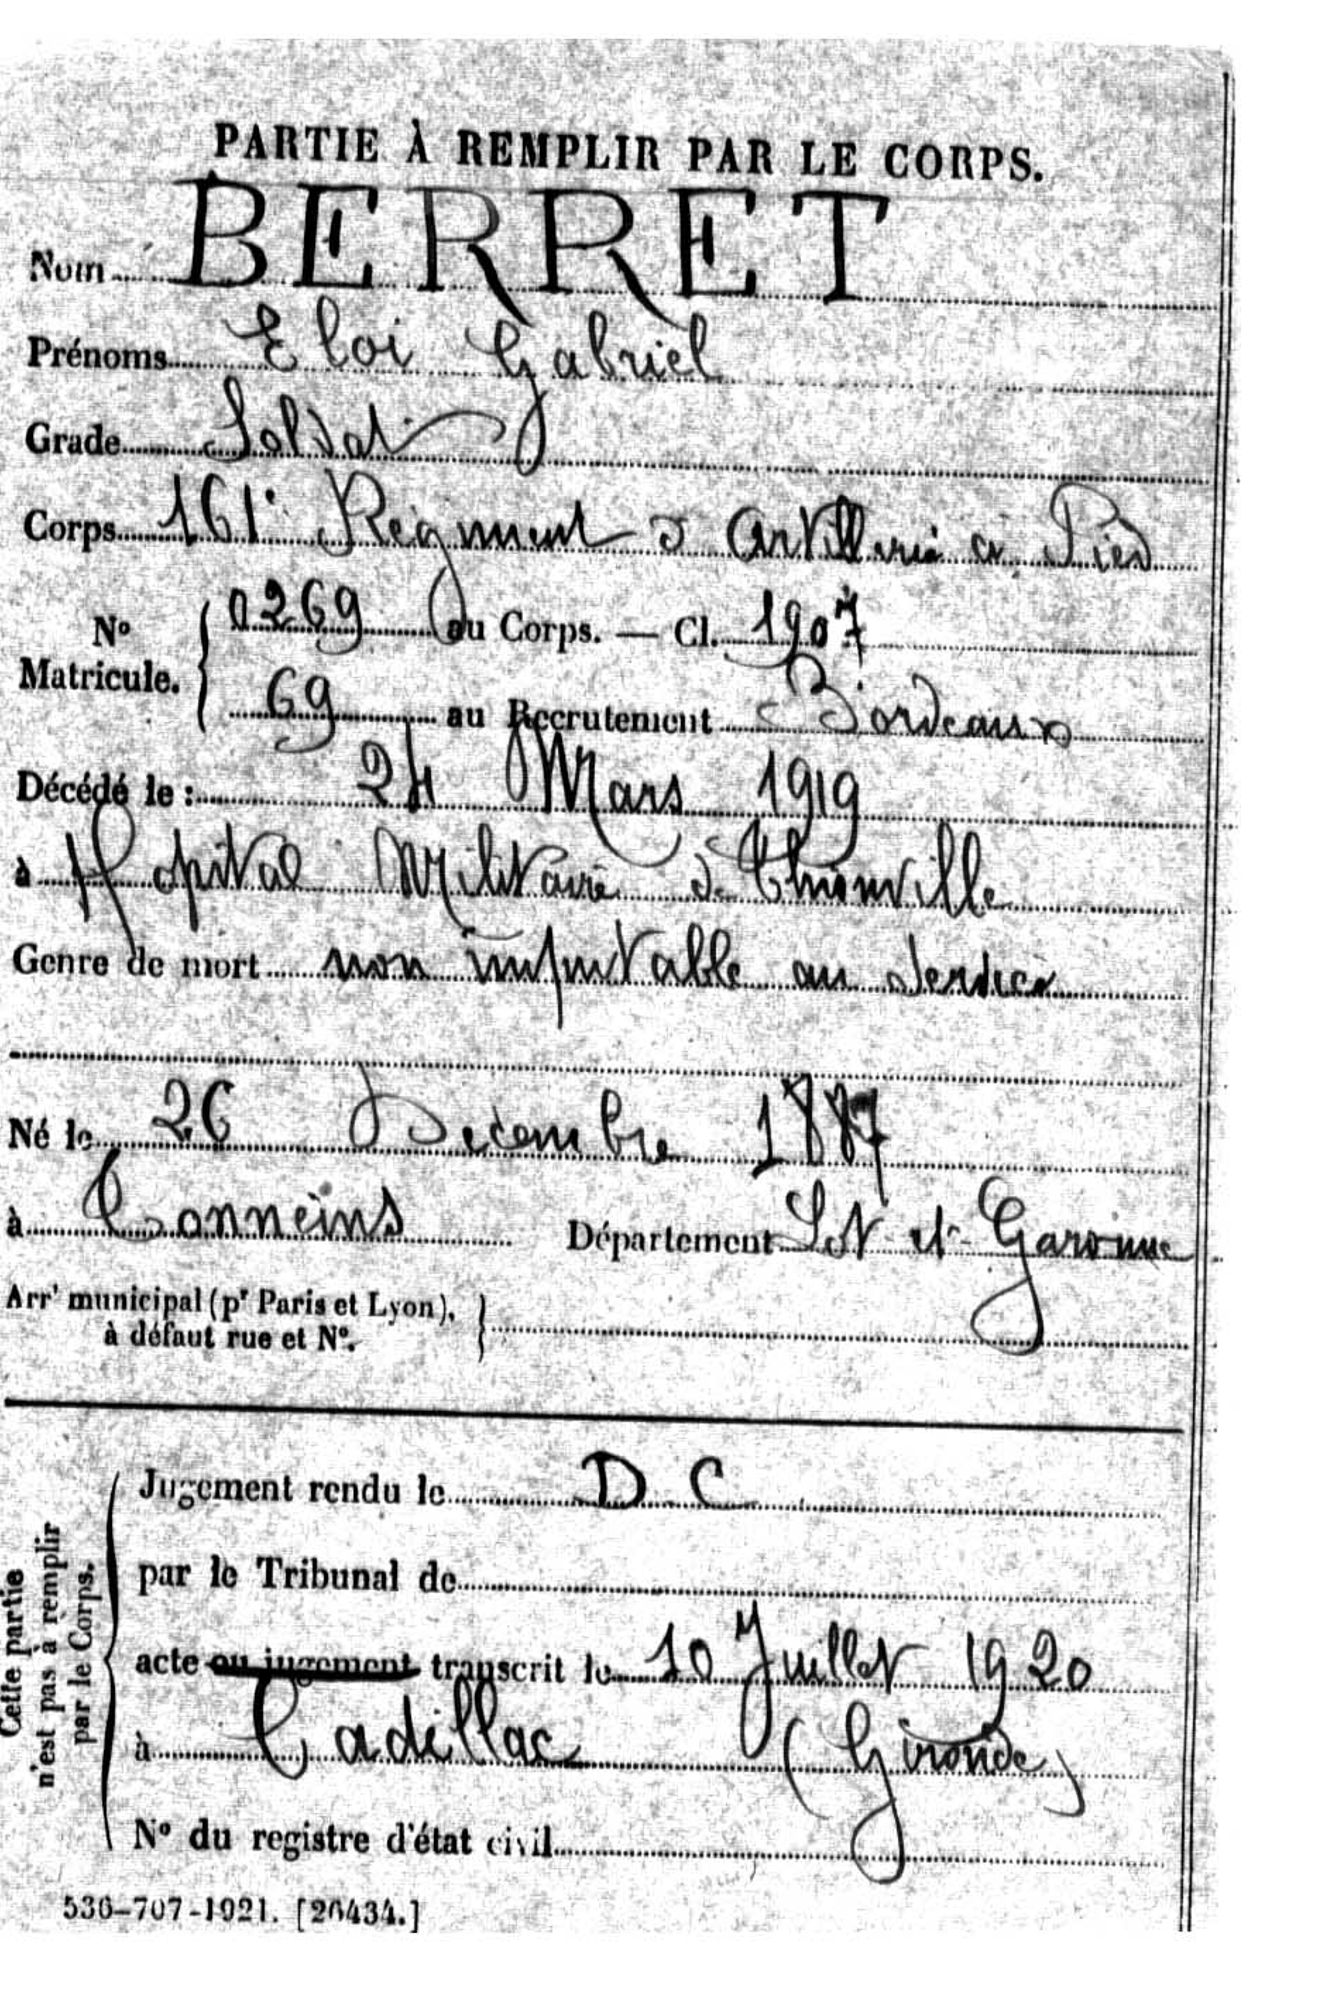 PARTIE À REMPLIR PAR LE CORPS.
Nom BERRET
Prénoms Eloi Gabriel
Grade Soldat
Corps 161e Régiment d'Artillerie à Pied
No Matricule. { 0269 au Corps. — Cl. 1907
69 au Recrutement Bordeaux
Décédé le : 24 Mars 1919
à Hopital Militaire de Thionville
Genre de mort non imputable au service
Né le 26 Décembre 1887
à Tonneins Département Lot et Garonne
Arrt municipal (pr Paris et Lyon), à défaut rue et No. }
Cette partie n'est pas à remplir par le Corps.
Jugement rendu le D C
par le Tribunal de
acte ou jugement transcrit le 10 Juillet 1920
à Cadillac (Gironde)
No du registre d'état civil
536-707-1921. [26434.]